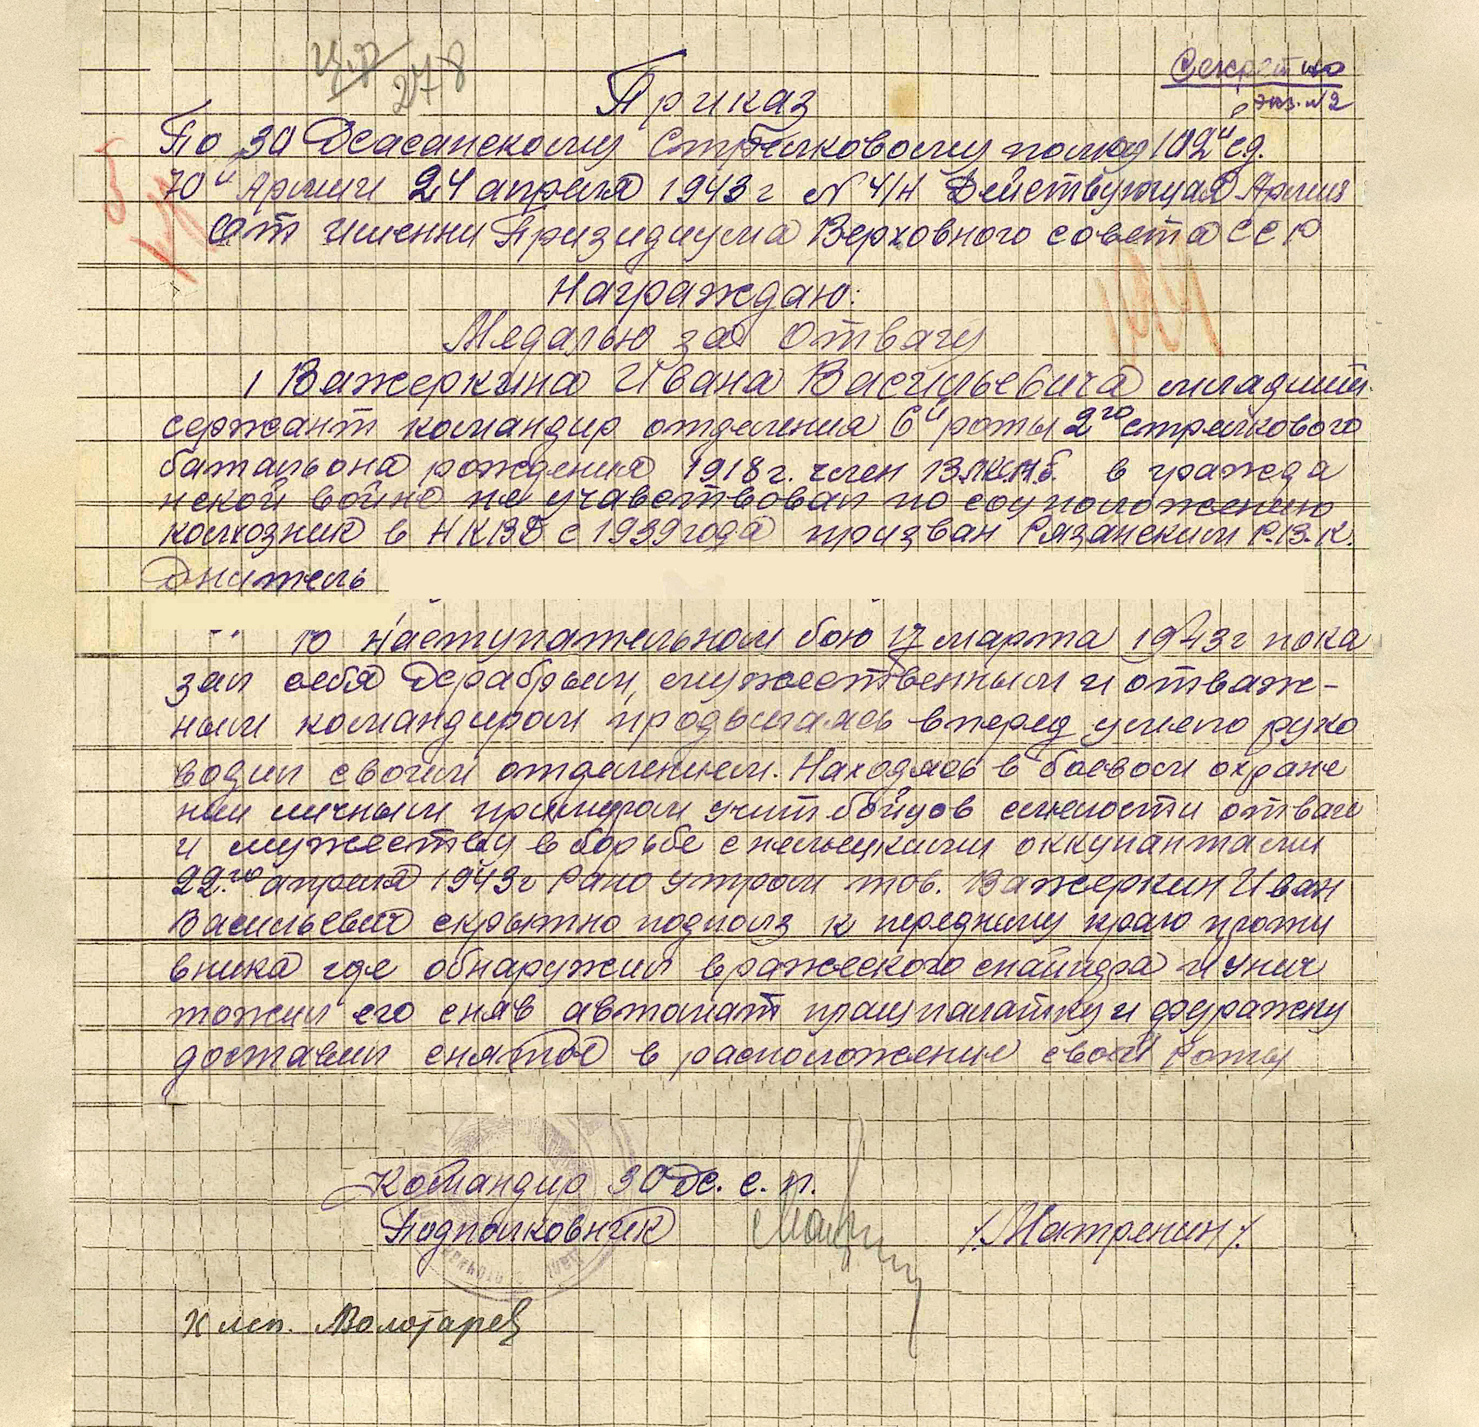 Секретно
экз. №2
278
Приказ
По 30 Хасанскому Стрелковому полку 102й с.д.
70й Армии 24 апреля 1943 г № 4/Н Действующая Армия
От имени Призидиума Верховного совета СССР
Награждаю:
Медалью за Отвагу
1 Важеркина Ивана Васильевича младший
сержант командир отделения 6й роты 2го стрелкового
батальона рождения 1918 г. член ВЛКСМ в гражда
нской войне не учавствовал по соцположению
колхозник в НКВД с 1939 года призван Рязанским Р.В.К.
житель
наступательном бою 17 марта 1943 г пока
зал себя храбрым, мужественным и отваж-
ным командиром продвигаясь вперед умело руко
водил своим отделением. Находясь в боевом охране
нии личным примером учит бойцов смелости отваги
и мужеству в борьбе с немецкими оккупантами
22го апреля 1943 г Рано утром тов. Важеркин Иван
Васильевич скрытно подполз к переднему краю проти
вника где обнаружил вражеского снайпера и унич
тожил его сняв автомат плащпалатку и фуражку
доставил снятое в расположение своей роты
Командир 30 Хс. с. п.
Подполковник /Матренин/